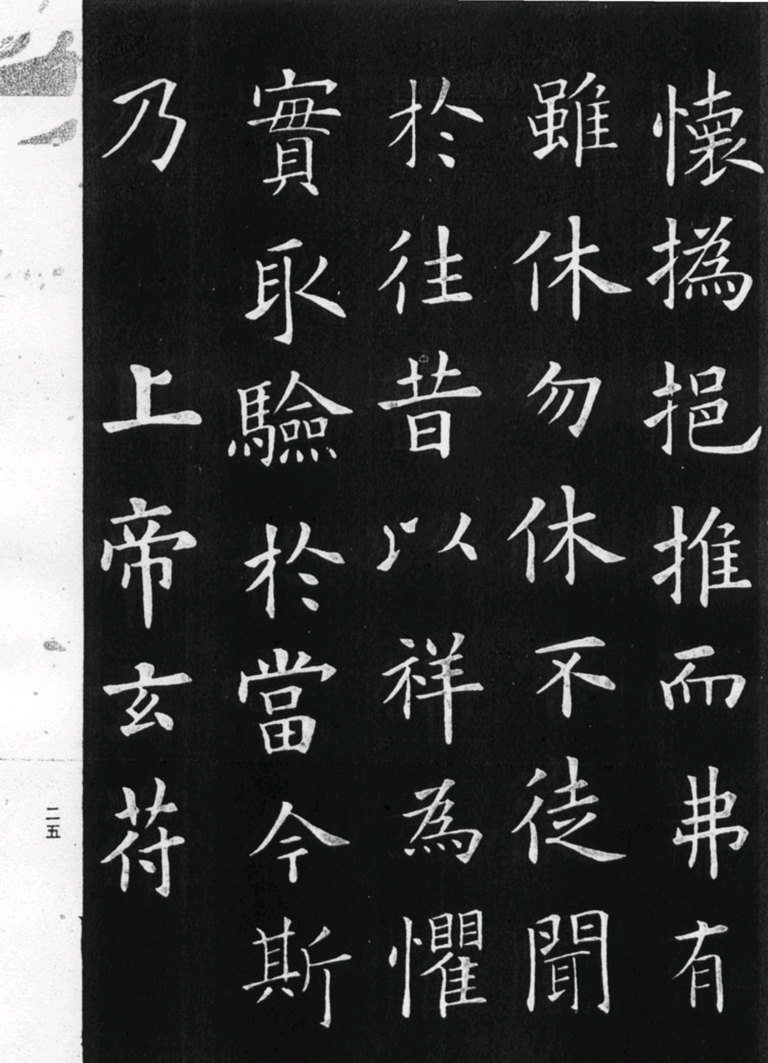 懷撝挹推而弗有
雖休勿休不徒聞
於往昔以祥為懼
實取驗於當今斯
乃　上帝玄符
二五